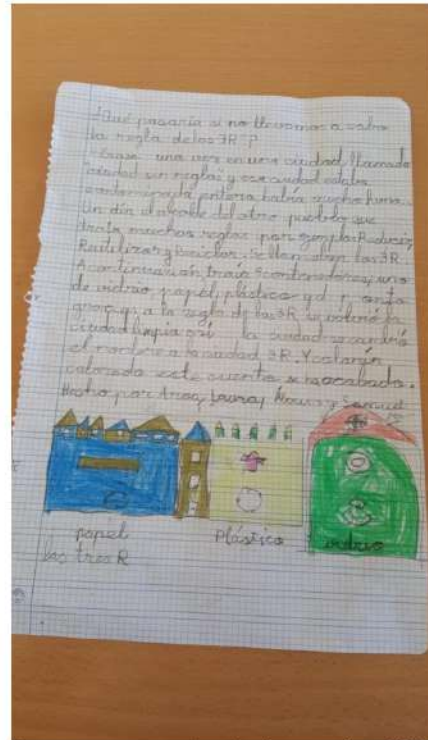 ¿Qué pasaría si no llevamos a cabo
la regla de las 3R?
Erase una vez en una ciudad llamada
ciudad sin reglas y esa ciudad estaba
contaminada entera había mucho humo.
Un día el alcalde del otro pueblo que
traía muchas reglas por ejemplo: Reducir,
Reutilizar y Reciclar. se llamaban las 3R.
A continuación traía contenedores, uno
de vidrio, papel, plástico y
gracias a la regla de las 3R se volvió la
ciudad limpia así la ciudad se cambió
el nombre a la ciudad 3R. Y colorín
colorado este cuento se ha acabado.
Hecho por Laura, y Samuel
papel
Plástico
vidrio
las tres R